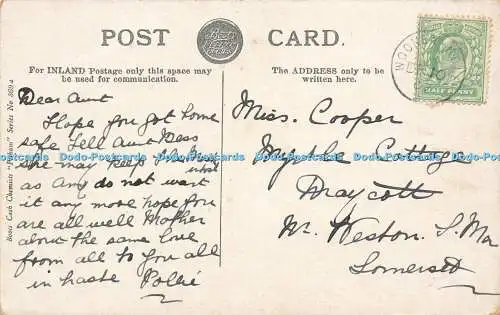 POST CARD.
For INLAND Postage only this space may
be used for communication.
The ADDRESS only to be
written here.
Boots Cash Chemists "Pelham" Series No
HALF PENNY
Dear Aunt
Hope you got home
safe Tell Aunt Bess
she may keep
what
as Amy do not want
it any more hope you
are all well Mother
about the same love
from all to you all
in haste Pollie
Miss. Cooper
Myrtle Cottage
Draycott
Nr. Weston. S. Ma
Somerset
Dodo-Postcards Dodo-Postcards Dodo-Postcards Dodo-Postcards Dodo-Postcards